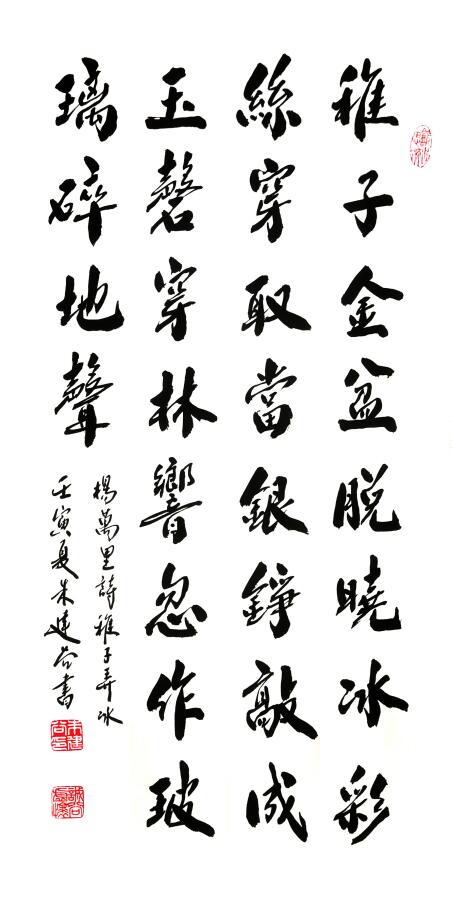 稚子金盆脱曉冰彩
絲穿取當銀錚敲成
玉磬穿林響忽作玻
璃碎地聲
楊萬里詩稚子弄冰
壬寅夏朱建書